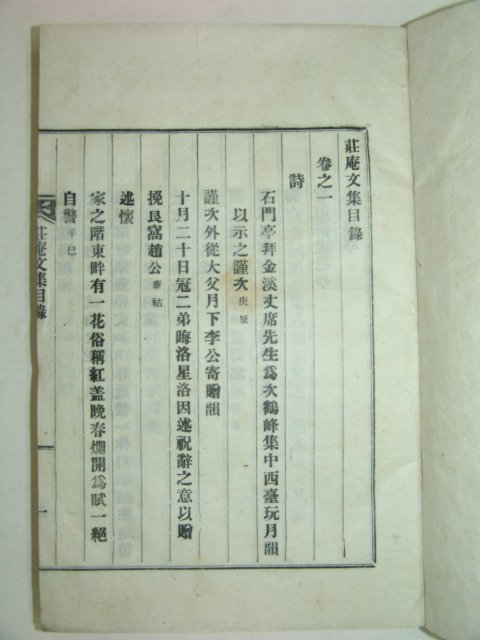 莊庵文集目錄
卷之一
詩
石門亭拜金溪丈席先生爲次鶴峰集中西臺玩月韻
以示之謹次庚辰
謹次外從大父月下李公寄贈韻
十月二十日冠二弟晦洛星洛因述祝辭之意以贈
挽良窩趙公泰祜
述懷
家之階東畔有一花俗稱紅盖晚春爛開爲賦一絕
自警辛巳
莊庵文集目錄
一